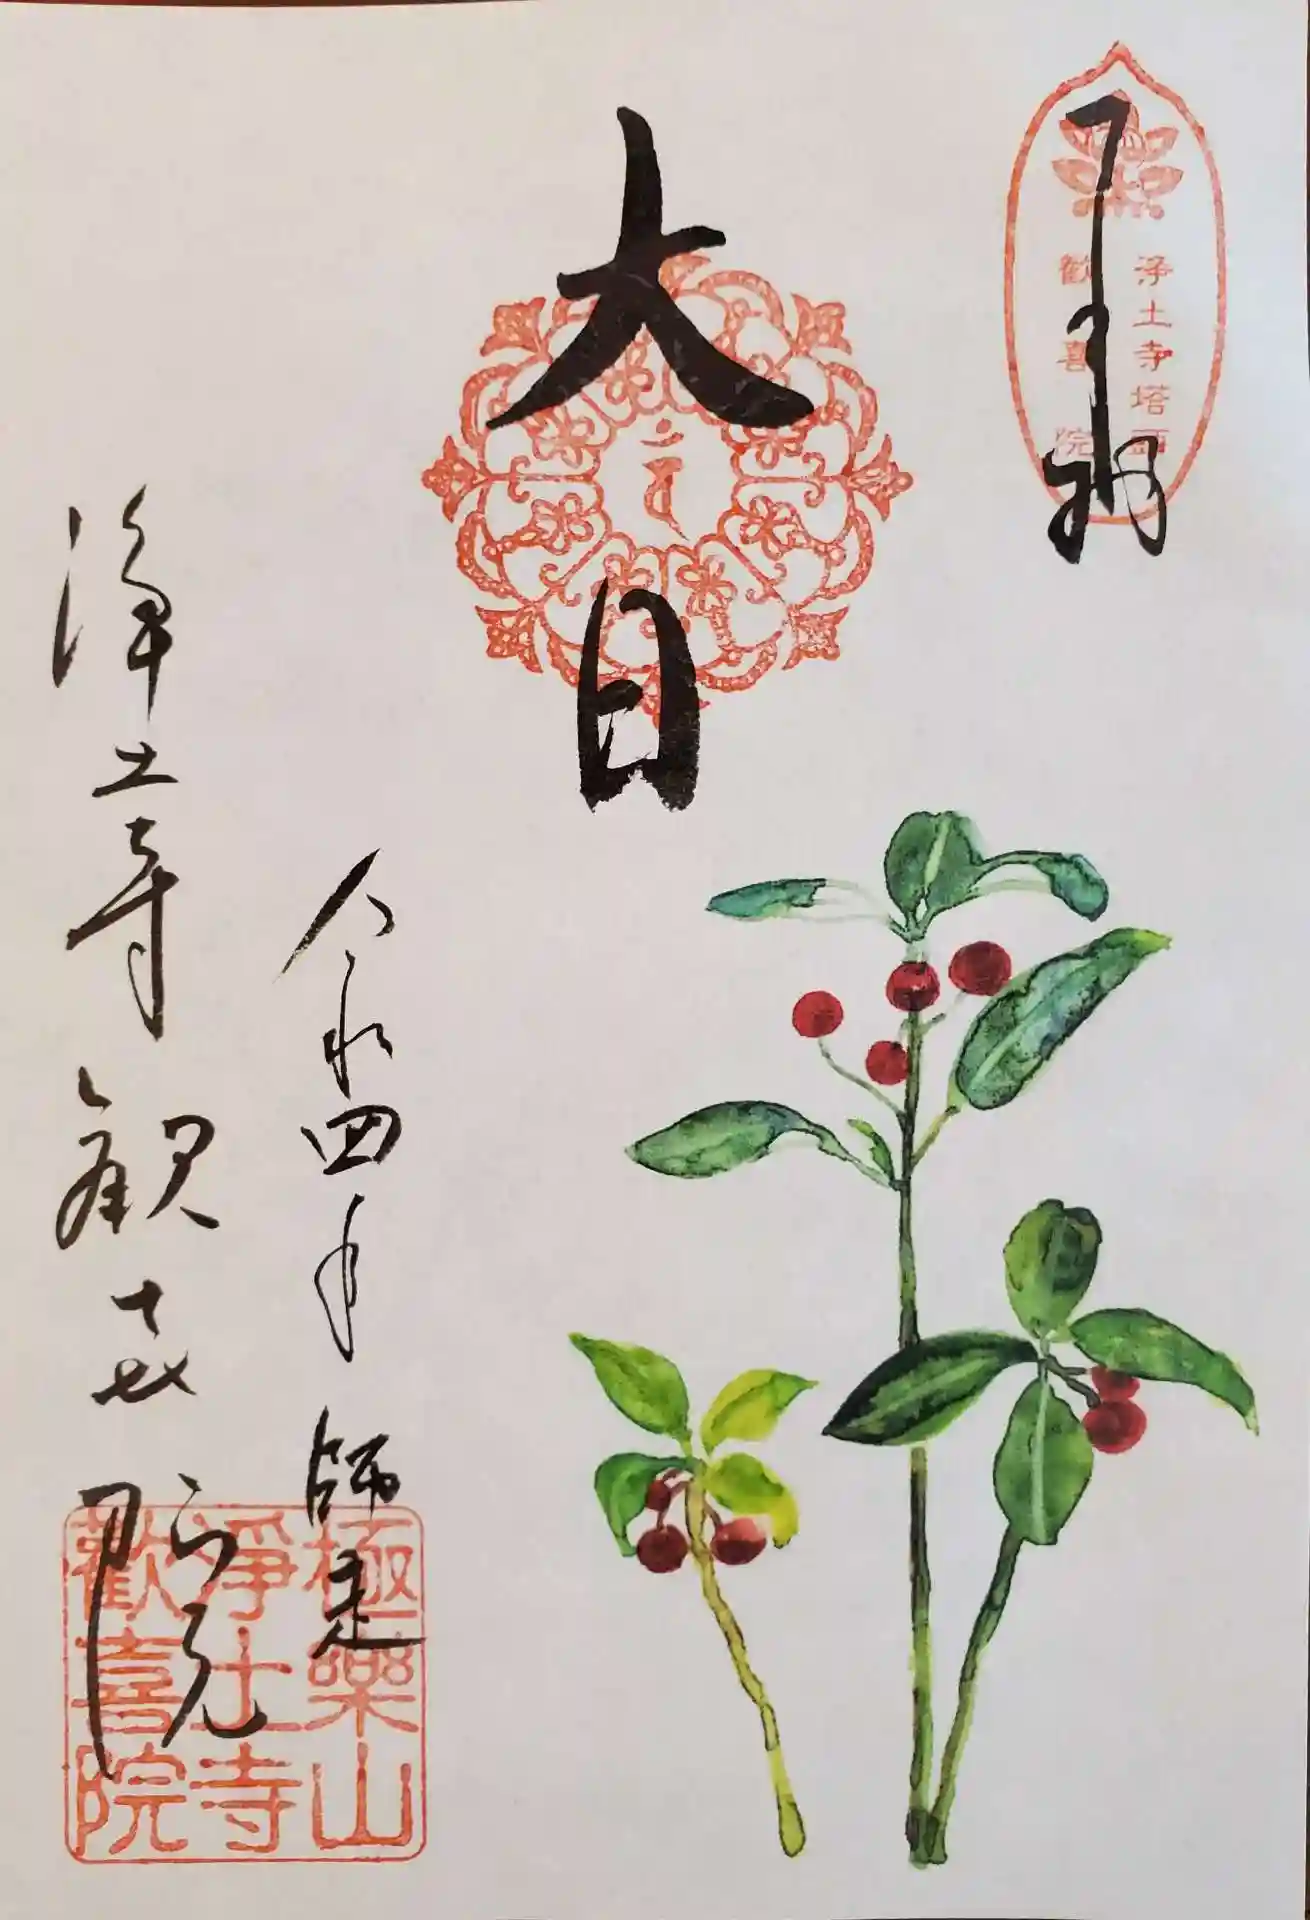 奉拝
浄土寺塔面
歓喜院
大日
令和四年 師走
浄土寺 歓喜院
極樂山
淨土寺
歡喜院